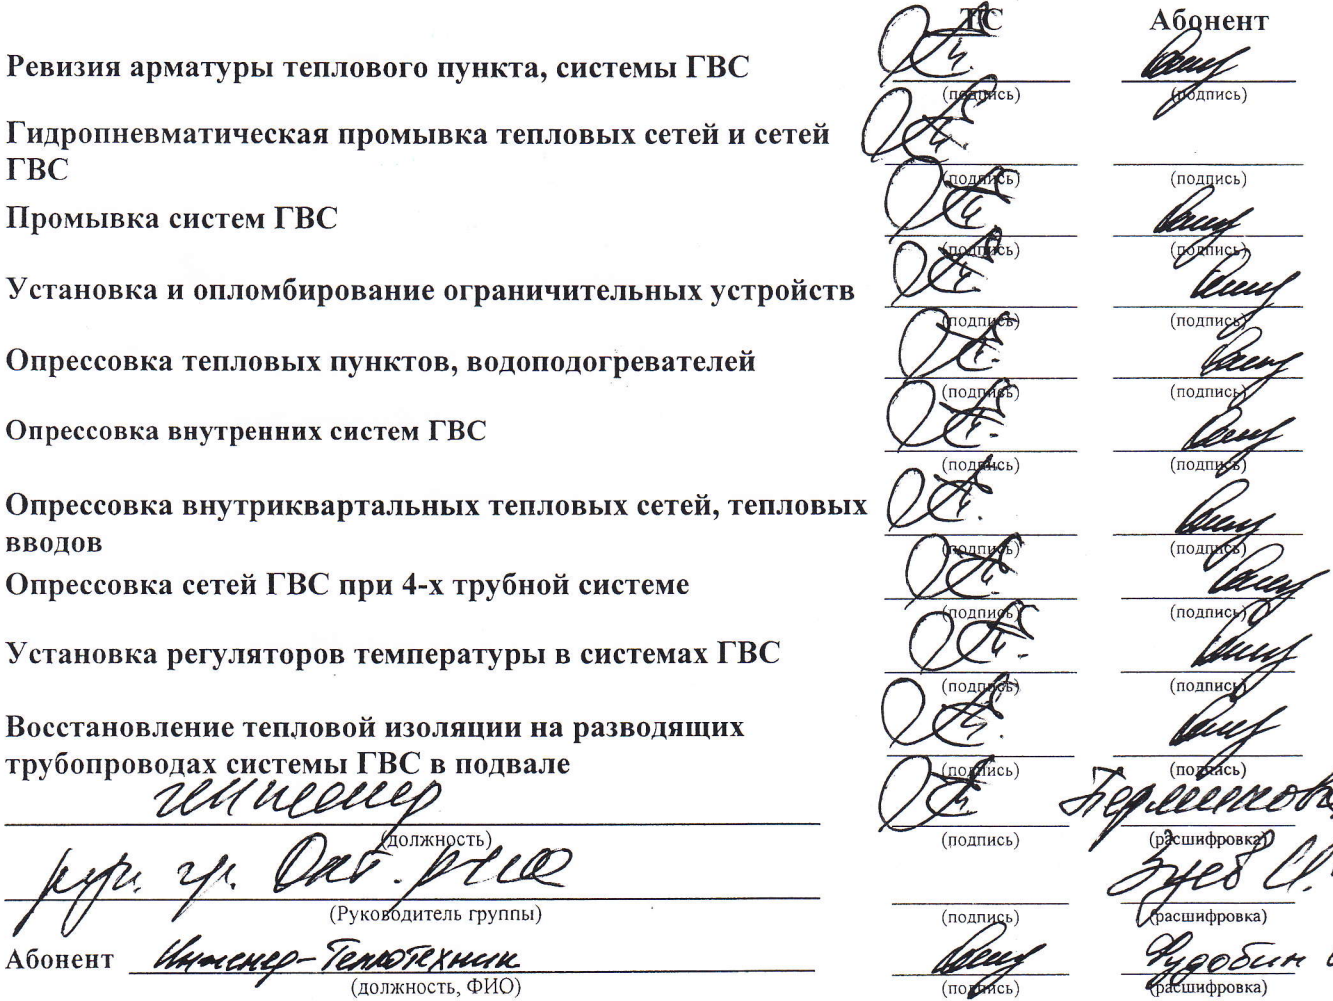 ТС Абонент
Ревизия арматуры теплового пункта, системы ГВС
(подпись) (подпись)
Гидропневматическая промывка тепловых сетей и сетей
ГВС
(подпись) (подпись)
Промывка систем ГВС
(подпись) (подпись)
Установка и опломбирование ограничительных устройств
(подпись) (подпись)
Опрессовка тепловых пунктов, водоподогревателей
(подпись) (подпись)
Опрессовка внутренних систем ГВС
(подпись) (подпись)
Опрессовка внутриквартальных тепловых сетей, тепловых
вводов
(подпись) (подпись)
Опрессовка сетей ГВС при 4-х трубной системе
(подпись) (подпись)
Установка регуляторов температуры в системах ГВС
(подпись) (подпись)
Восстановление тепловой изоляции на разводящих
трубопроводах системы ГВС в подвале
(подпись) (подпись)
инженер
(должность) (подпись) (расшифровка)
рук. гр. Окт. Зуев
(Руководитель группы) (подпись) (расшифровка)
Абонент Инженер-Теплотехник
(должность, ФИО) (подпись) (расшифровка)